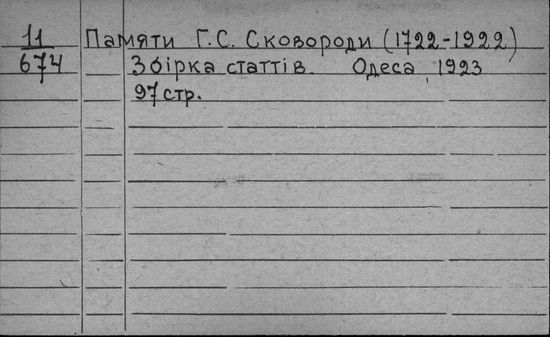 11 Памяти Г.С. Сковороди (1722-1922)
674 Збірка статтів. Одеса, 1923
97 стр.